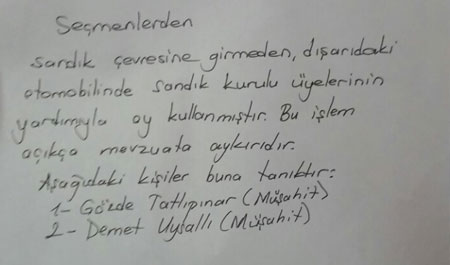 Seçmenlerden
sandık çevresine girmeden, dışarıdaki
otomobilinde sandık kurulu üyelerinin
yardımıyla oy kullanmıştır. Bu işlem
açıkça mevzuata aykırıdır.
Aşağıdaki kişiler buna tanıktır:
1- Gözde Tatlıpınar (Müşahit)
2- Demet Uysallı (Müşahit)